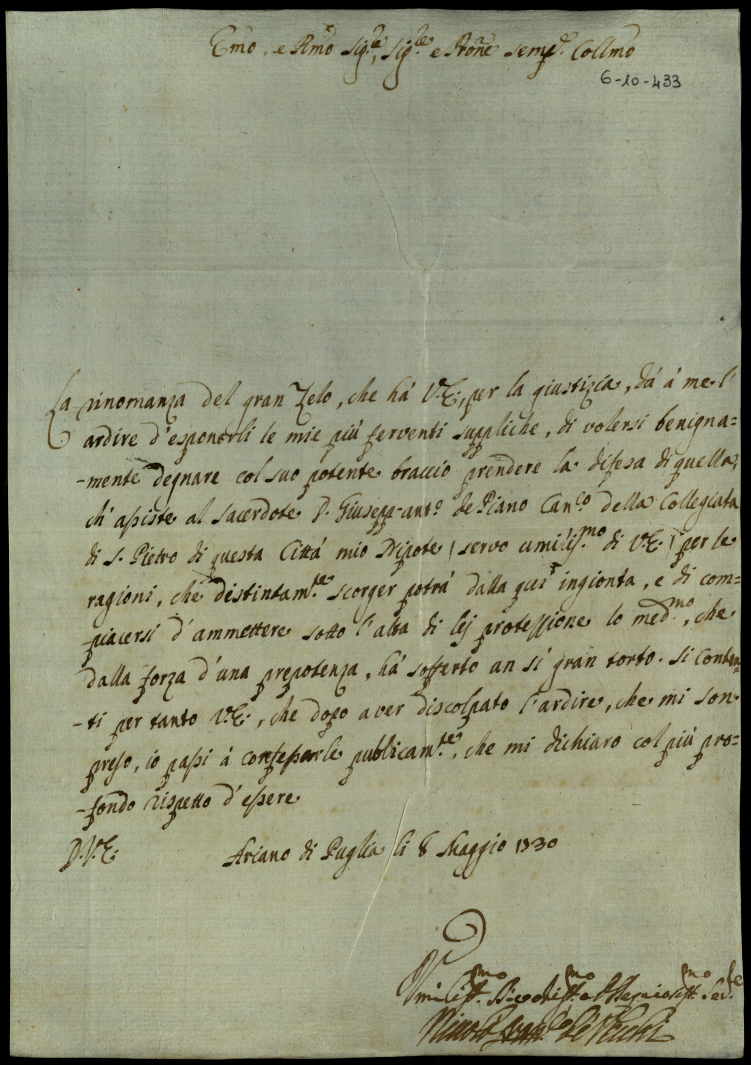 Emo. e Rmo Sig.re, Sig.re e Prone semp.e Collmo
6-10-433
La rinomanza del gran Zelo, che há V.E., per la giustizia, dá á me l'
ardire d'esponerli le mie più ferventi suppliche, di volersi benigna=
=mente degnare col suo potente braccio prendere la difesa di quella,
ch' assiste al sacerdote D. Giusepp-ant.o de Piano Can.co della Collegiata
di S. Pietro di questa Cittá mio Nipote (servo umiliss.mo di V.E.) per le
ragioni, che distintam.te scorger potrá dalla qui ingionta, e di com=
=piacersi d'ammettere sotto l'alta di lej protezzione lo med.mo, che
dalla forza d'una prepotenza, há sofferto un sí gran torto. Si conten=
=ti per tanto V.E., che dopo aver discolpato l'ardire, che mi son
preso, io passi á confessarle publicam.te, che mi dichiaro col più pro=
=fondo rispetto d'essere
D.V.E.
Ariano di Puglia li 8 Maggio 1730
Umiliss.mo Ossequiosiss.mo Ser.re